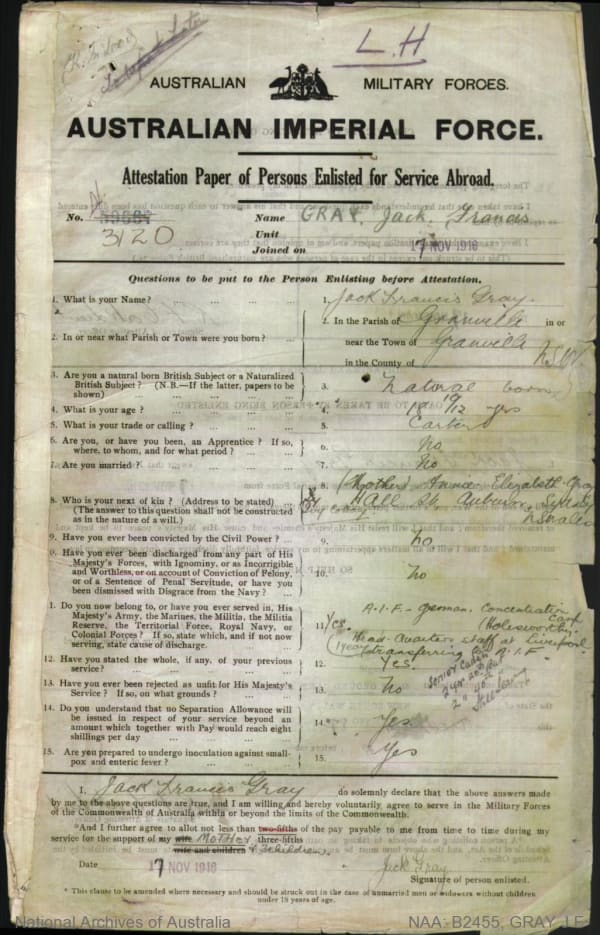 L.H
AUSTRALIAN MILITARY FORCES.
AUSTRALIAN IMPERIAL FORCE.
Attestation Paper of Persons Enlisted for Service Abroad.
No. Name GRAY. Jack. Francis
3120 Unit
Joined on 17 NOV 1916
Questions to be put to the Person Enlisting before Attestation.
1. What is your Name? ... ... ... 1. Jack Francis Gray.
2. In or near what Parish or Town were you born? ... 2. In the Parish of Granville in or
near the Town of Granville
in the County of N.S.W.
3. Are you a natural born British Subject or a Naturalized
British Subject? (N.B.—If the latter, papers to be
shown) ... ... ... 3. Natural born
4. What is your age? ... ... ... 4. 19 10/12 yrs
5. What is your trade or calling? ... ... 5. Carter
6. Are you, or have you been, an Apprentice? If so,
where, to whom, and for what period? ... 6. No
7. Are you married? ... ... ... 7. No
8. Who is your next of kin? (Address to be stated) ... 8. (Mother) Annie Elizabeth Gray
(The answer to this question shall not be constructed Hall St Auburn, Sydney
as in the nature of a will.) N.S. Wales
9. Have you ever been convicted by the Civil Power? ... 9. No
0. Have you ever been discharged from any part of His
Majesty's Forces, with Ignominy, or as Incorrigible
and Worthless, or on account of Conviction of Felony,
or of a Sentence of Penal Servitude, or have you
been dismissed with Disgrace from the Navy? ... 10. No
1. Do you now belong to, or have you ever served in, His
Majesty's Army, the Marines, the Militia, the Militia
Reserve, the Territorial Force, Royal Navy, or
Colonial Forces? If so, state which, and if not now
serving, state cause of discharge. 11. Yes. A.I.F. German Concentration Camp
(Holesworthy.
1 year Head-Quarters Staff at Liverpool
(transferring to A.I.F.
12. Have you stated the whole, if any, of your previous
service? ... ... ... 12. Yes.
Senior Cadets
13. Have you ever been rejected as unfit for His Majesty's
Service? If so, on what grounds? ... 13. No
14. Do you understand that no Separation Allowance will
be issued in respect of your service beyond an
amount which together with Pay would reach eight
shillings per day ... ... 14. Yes
15. Are you prepared to undergo inoculation against small-
pox and enteric fever? ... ... 15. Yes
I, Jack Francis Gray do solemnly declare that the above answers made
by me to the above questions are true, and I am willing and hereby voluntarily agree to serve in the Military Forces
of the Commonwealth of Australia within or beyond the limits of the Commonwealth.
*And I further agree to allot not less than two-fifths of the pay payable to me from time to time during my
service for the support of my wife MOTHER three-fifths
wife and children & children.
Date 17 NOV 1916 Jack Gray
Signature of person enlisted.
* This clause to be amended where necessary and should be struck out in the case of unmarried men or widowers without children
under 18 years of age.
National Archives of Australia NAA: B2455, GRAY J F